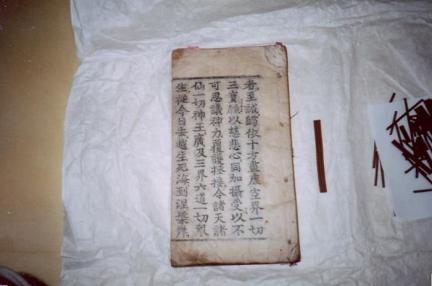 者至誠歸依十方盡虛空界一切
三寶願以慈悲心同加攝受以不
可思議神力覆護拯接令諸天諸
仙一切神王廣及三界六道一切衆
生從今日去越生死海到涅槃